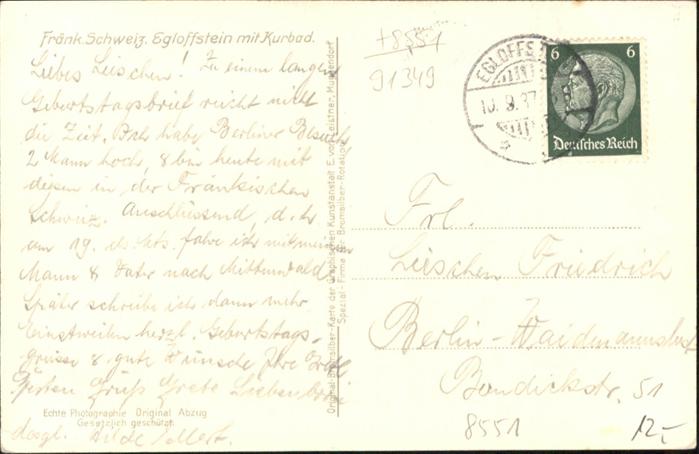 Fränk. Schweiz. Egloffstein mit Kurbad.
Liebes Lieschen! Zu einem langen
Geburtstagsbrief reicht nicht
die Zeit. Ich habe Berliner Besuch
2 Mann hoch, & bin heute mit
diesen in der Fränkischen
Schweiz. Anschliessend, d. h.
am 19. ds Mts. fahre ich mit meinem
Mann & Vater nach Mittenwald
Später schreibe ich dann mehr
Einstweilen herzl. Geburtstags-
grüsse & gute Wünsche, Ihre
Gruß Grete
Echte Photographie Original Abzug
Gesetzlich geschützt.
desgl. Hilde
Original-Bromsilber-Karte der Graphischen Kunstanstalt E. von Leistner, Muggendorf
Spezial-Firma für Bromsilber-Rotation
+8551
91349
EGLOFFST
10.9.37
6 6
Deutsches Reich
Frl.
Lieschen Friedrich
Berlin-Waidmannslust
Bondickstr. 51
8551
12,-